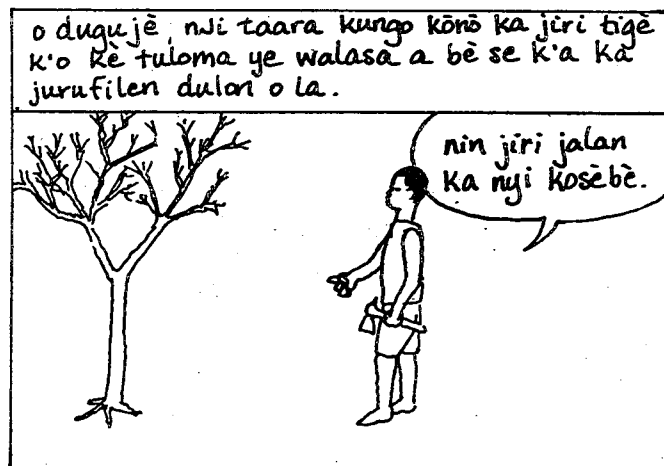 o dugujè, nji taara kungo kònò ka jiri tigè
k'o kè tuloma ye walasa a bè se k'a ka
jurufilen dulon o la.
nin jiri jalan
ka nyi kosèbè.